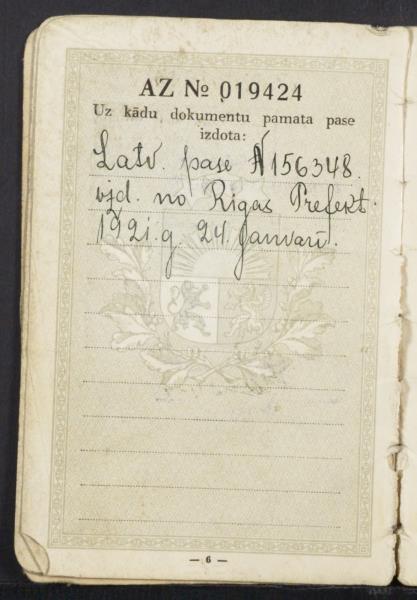 AZ № 019424
Uz kādu dokumentu pamata pase
izdota:
Latv. pase N156348.
izd. no Rigas Prefekt.
1921. g. 24. janvarī.
— 6 —